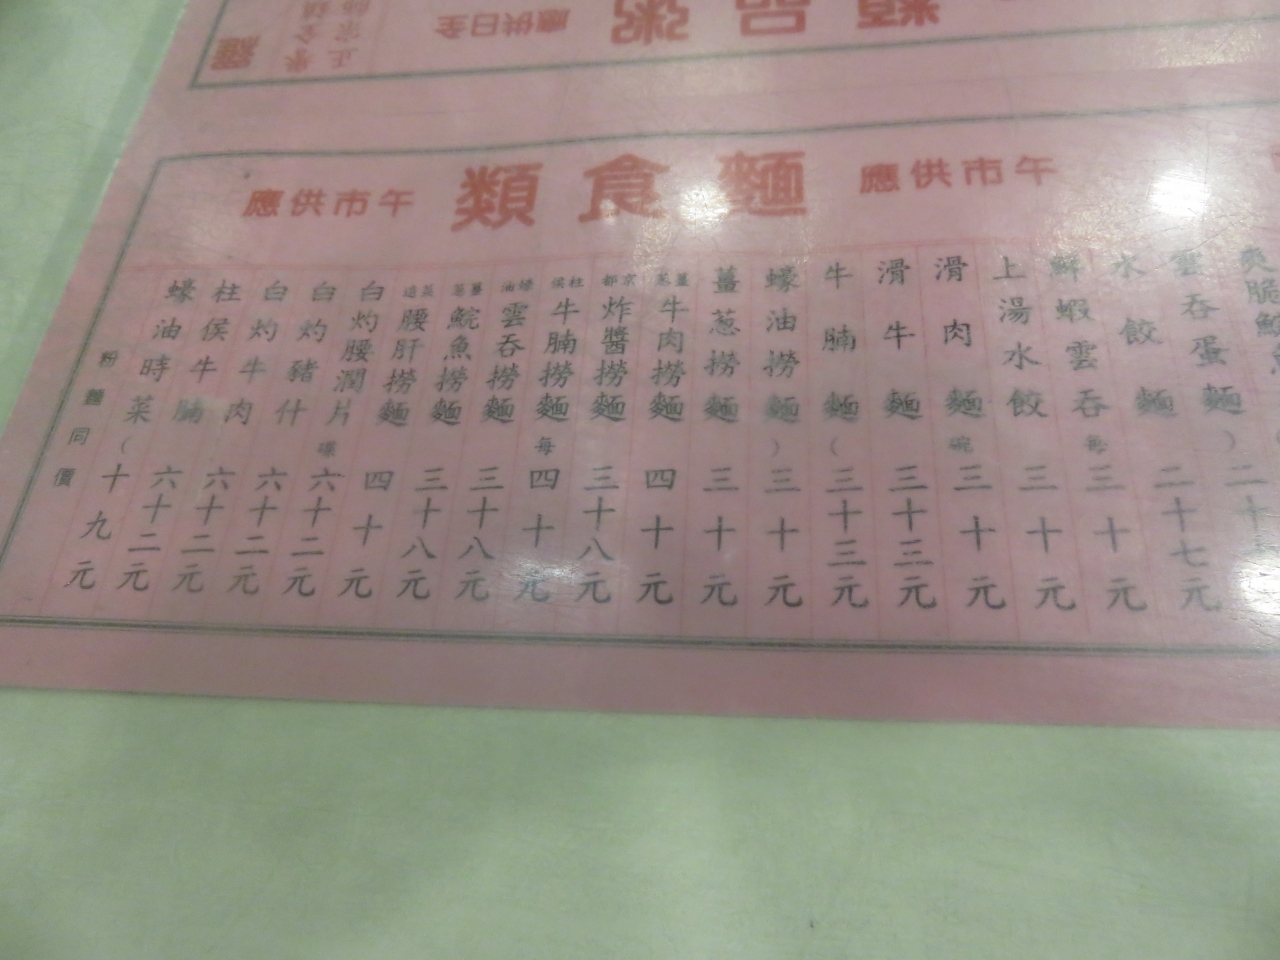 全日供應
粥品
午市供應
麵食類
午市供應
雲吞蛋麵 ） 二十
水餃麵 二十七元
鮮蝦雲吞 每 三十元
上湯水餃 三十元
滑肉麵 碗 三十元
滑牛麵 三十三元
牛腩麵 （ 三十三元
蠔油撈麵 ） 三十元
薑蔥撈麵 三十元
薑蔥牛肉撈麵 四十元
京都炸醬撈麵 三十八元
柱侯牛腩撈麵 每 四十元
蠔油雲吞撈麵 三十八元
薑蔥鯇魚撈麵 三十八元
腰肝撈麵 四十元
白灼腰潤片 碟 六十二元
白灼豬什 六十二元
白灼牛肉 六十二元
柱侯牛腩 六十二元
蠔油時菜 （ 十九元
粉麵同價